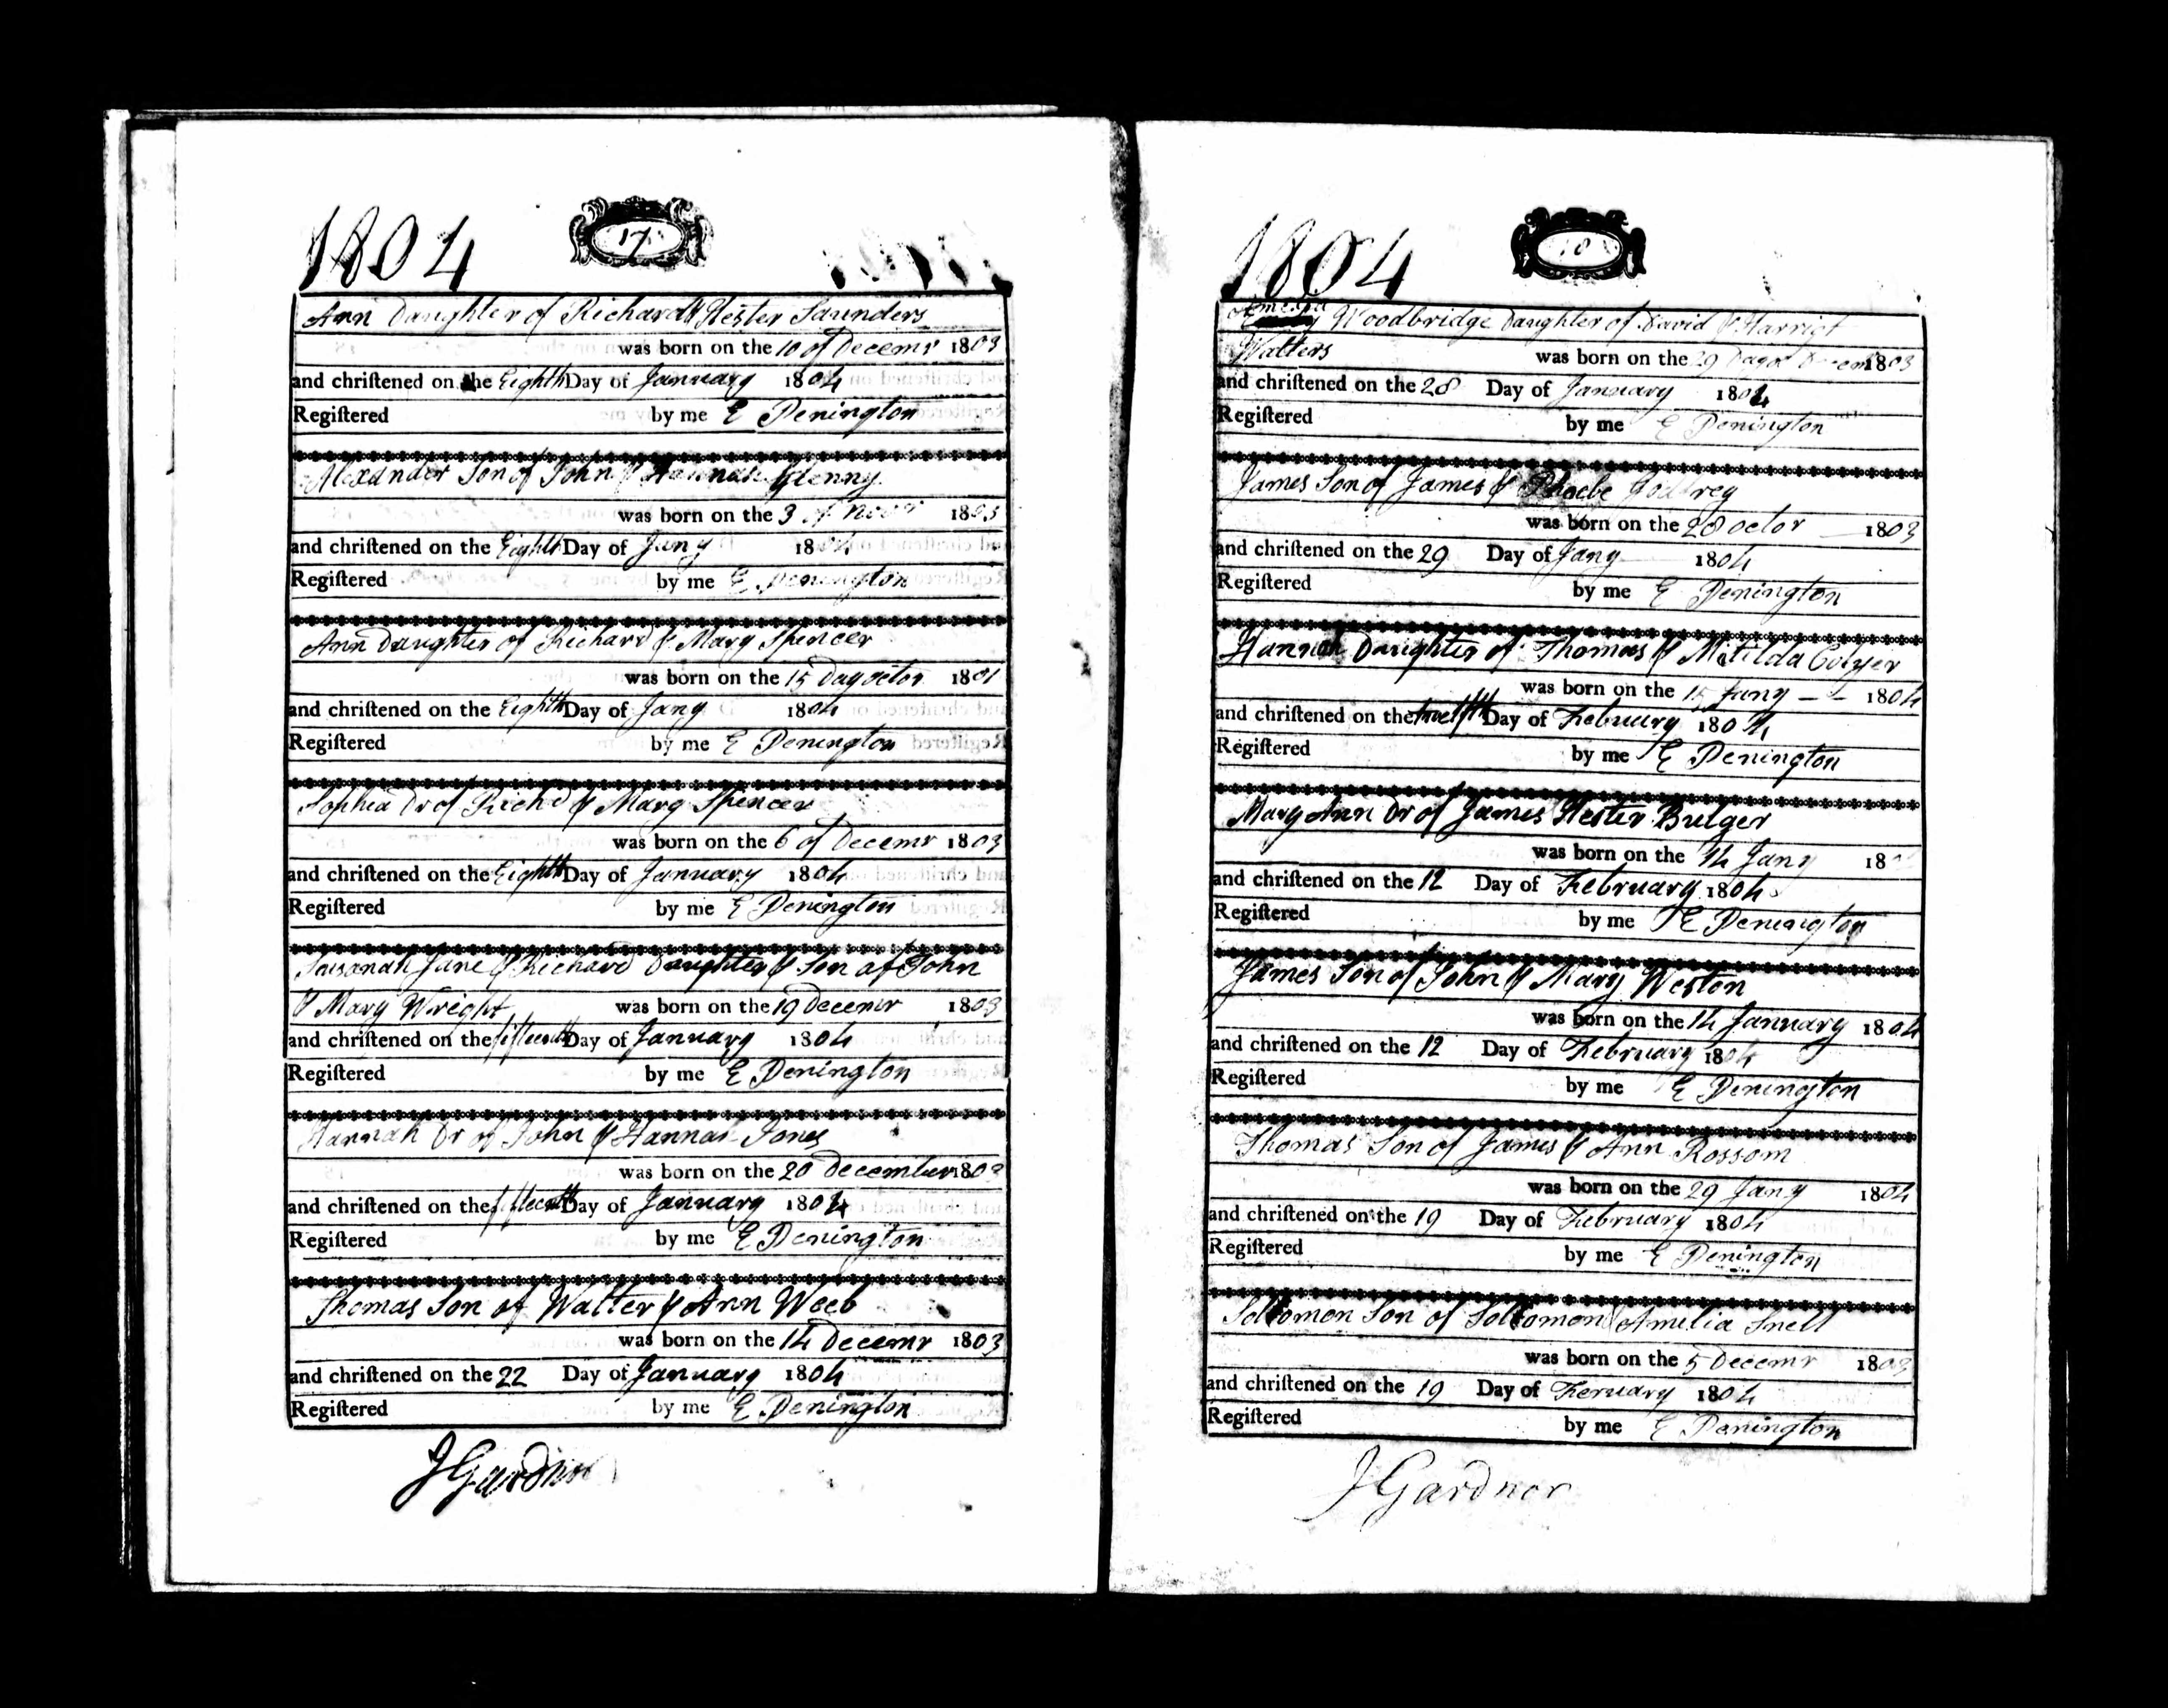 1804
17
Ann Daughter of Richard & Hester Saunders
was born on the 10 of Decemr 1803
and chriſtened on the Eighth Day of January 1804
Regiſtered by me E Denington
Alexander Son of John & Hannah Glenny
was born on the 3 of Novr 1803
and chriſtened on the Eighth Day of Jany 1804
Regiſtered by me E Denington
Ann Daughter of Richard & Mary Spencer
was born on the 15 Day octor 1801
and chriſtened on the Eighth Day of Jany 1804
Regiſtered by me E Denington
Sophia Dr of Richd & Mary Spencer
was born on the 6 of Decemr 1803
and chriſtened on the Eighth Day of January 1804
Regiſtered by me E Denington
Susanah Jane & Richard Daughter & Son of John
& Mary Wright was born on the 19 Decemr 1803
and chriſtened on the fifteenth Day of January 1804
Regiſtered by me E Denington
Hannah Dr of John & Hannah Jones
was born on the 20 December 1803
and chriſtened on the fifteenth Day of January 1804
Regiſtered by me E Denington
Thomas Son of Walter & Ann Weeb
was born on the 14 Decemr 1803
and chriſtened on the 22 Day of January 1804
Regiſtered by me E Denington
J Gardnor
1804
18
Amelia Woodbridge Daughter of David & Harriot
Walters was born on the 29 Day of Decem 1803
and chriſtened on the 28 Day of January 1804
Regiſtered by me E Denington
James Son of James & Phoebe Godfrey
was born on the 28 octor 1803
and chriſtened on the 29 Day of Jany 1804
Regiſtered by me E Denington
Hannah Daughter of Thomas & Matilda Colyer
was born on the 15 Jany 1804
and chriſtened on the twelfth Day of February 1804
Regiſtered by me E Denington
Mary Ann Dr of James Hester Bulger
was born on the 14 Jany 18
and chriſtened on the 12 Day of February 1804
Regiſtered by me E Denington
James Son of John & Mary Weston
was born on the 14 January 1804
and chriſtened on the 12 Day of February 1804
Regiſtered by me E Denington
Thomas Son of James & Ann Rossom
was born on the 29 Jany 1804
and chriſtened on the 19 Day of February 1804
Regiſtered by me E Denington
Solomon Son of Solomon Amelia Snell
was born on the 5 Decemr 1803
and chriſtened on the 19 Day of Feruary 1804
Regiſtered by me E Denington
J Gardnor